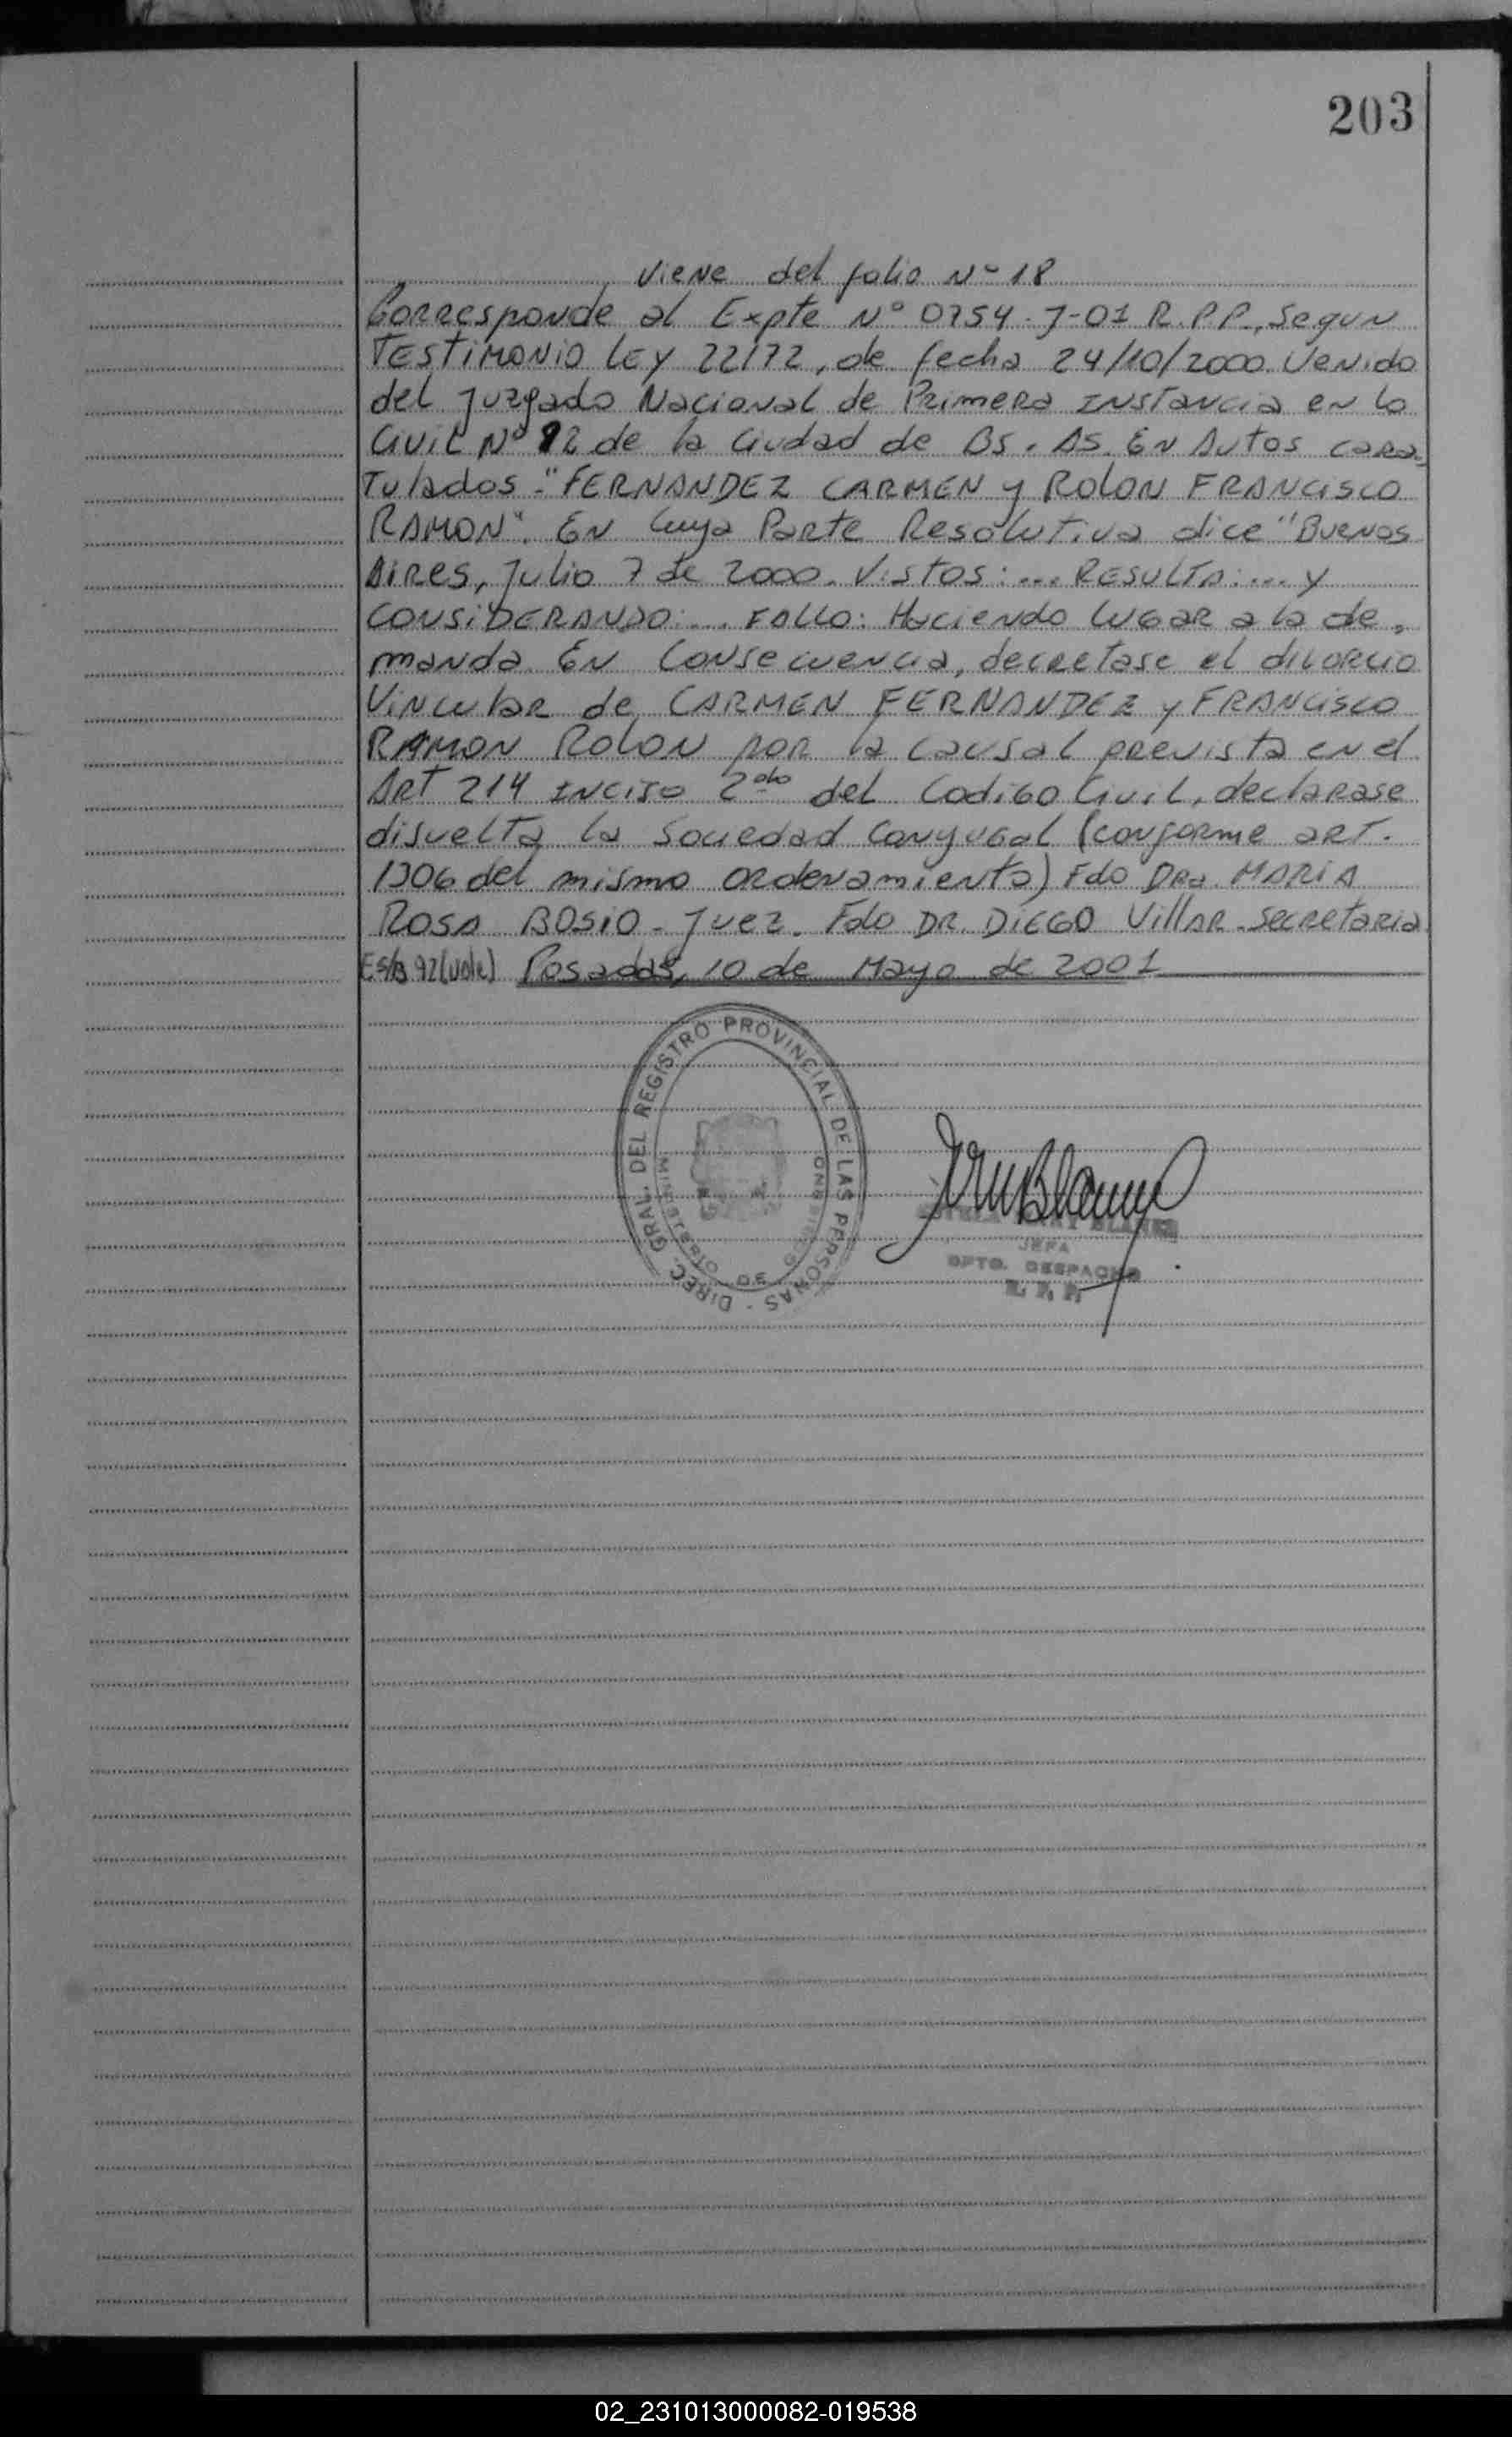 203
Viene del folio Nº 18
Corresponde al Expte Nº 0754-J-01 R.P.P., Segun
TESTIMONIO LEY 22172, de fecha 24/10/2000. Venido
del Juzgado Nacional de Primera INSTancia en lo
Civil Nº 92 de la Ciudad de BS. AS. EN Autos cara-
Tulados-"FERNANDEZ CARMEN y ROLON FRANCISCO
RAMON". EN Cuya Parte Resolutiva dice "BUENOS
AIRES, Julio 7 de 2000. Vistos:... RESULTA:... y
CONSIDERANDO:... FALLO: Haciendo LUGAR a la de-
manda. EN Consecuencia, decretase el divorcio
Vincular de CARMEN FERNANDEZ y FRANCISCO
RAMON ROLON por la causal prevista en el
ART 214 INCISO 2do del Codigo Civil, declarase
disuelta la Sociedad Conyugal (conforme ART.
1306 del mismo ordenamiento) Fdo DRa. MARIA
ROSA BOSIO - Juez. Fdo DR. DIEGO VILLAR - Secretaria
E S/B 92 (Vale) Posadas, 10 de Mayo de 2001
DIREC. GRAL. DEL REGISTRO PROVINCIAL DE LAS PERSONAS
MINISTERIO DE GOBIERNO
BLANES
JEFA
DPTO. DESPACHO
R. P. P.
02_231013000082-019538